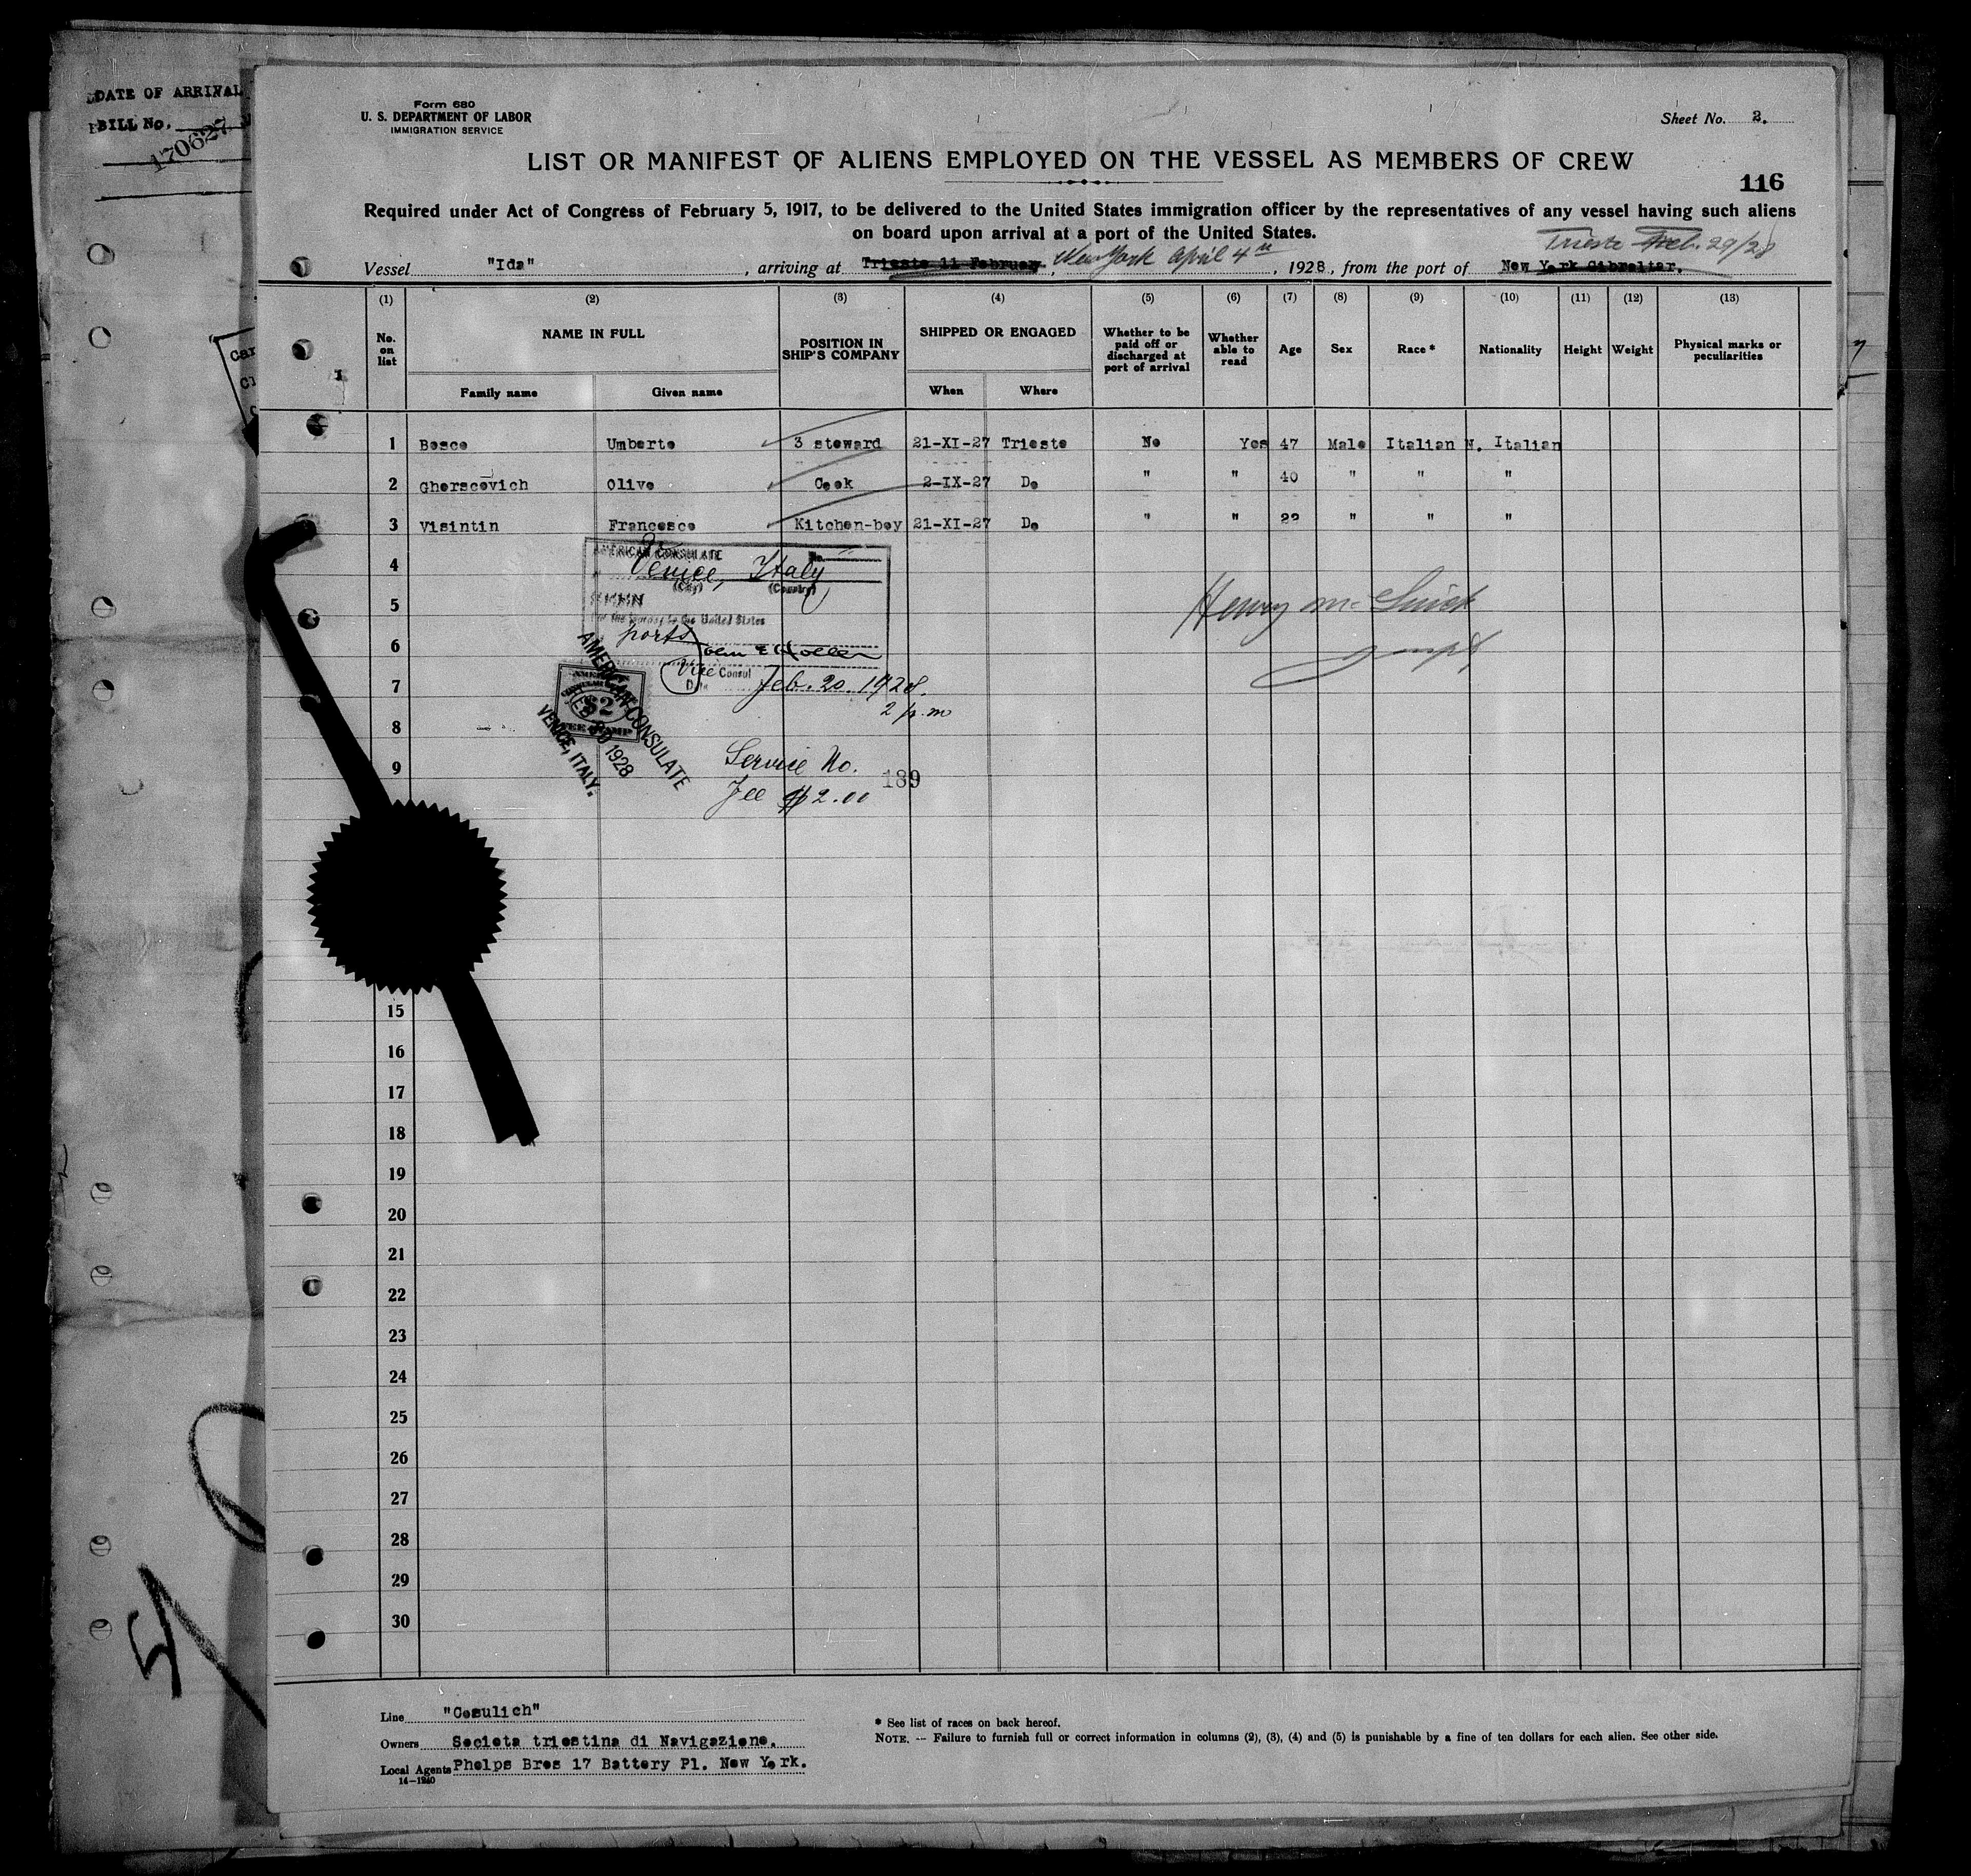 DATE OF ARRIVAL
BILL No.
170627
Form 680
U. S. DEPARTMENT OF LABOR
IMMIGRATION SERVICE
Sheet No. 2.
LIST OR MANIFEST OF ALIENS EMPLOYED ON THE VESSEL AS MEMBERS OF CREW
116
Required under Act of Congress of February 5, 1917, to be delivered to the United States immigration officer by the representatives of any vessel having such aliens
on board upon arrival at a port of the United States.
Trieste Feb. 29/28
Vessel "Ida" , arriving at Trieste 11 February, New York April 4th , 1928, from the port of New York Gibraltar.
(1) (2) (3) (4) (5) (6) (7) (8) (9) (10) (11) (12) (13)
No. on list NAME IN FULL POSITION IN SHIP'S COMPANY SHIPPED OR ENGAGED Whether to be paid off or discharged at port of arrival Whether able to read Age Sex Race * Nationality Height Weight Physical marks or peculiarities
Family name Given name When Where
1 Bosco Umberto 3 steward 21-XI-27 Trieste No Yes 47 Male Italian N. Italian
2 Gherscovich Olivo Cook 2-IX-27 Do " " 40 " " "
3 Visintin Francesco Kitchen-boy 21-XI-27 Do " " 22 " " "
AMERICAN CONSULATE No.
4 Venice, Italy
(City) (Country)
SEEN
5
For the journey to the United States
Henry
ports
6 John E Holler
Vice Consul
7 Date Feb. 20. 1928.
2 p.m
$2
FEE STAMP
AMERICAN CONSULATE
FEB 20 1928
VENICE, ITALY.
8
9 Service No. 189
Fee $2.00
15
16
17
18
19
20
21
22
23
24
25
26
27
28
29
30
Line "Cosulich"
Owners Societa triestina di Navigazione.
Local Agents Phelps Bros 17 Battery Pl. New York.
14—1240
* See list of races on back hereof.
NOTE. — Failure to furnish full or correct information in columns (2), (3), (4) and (5) is punishable by a fine of ten dollars for each alien. See other side.